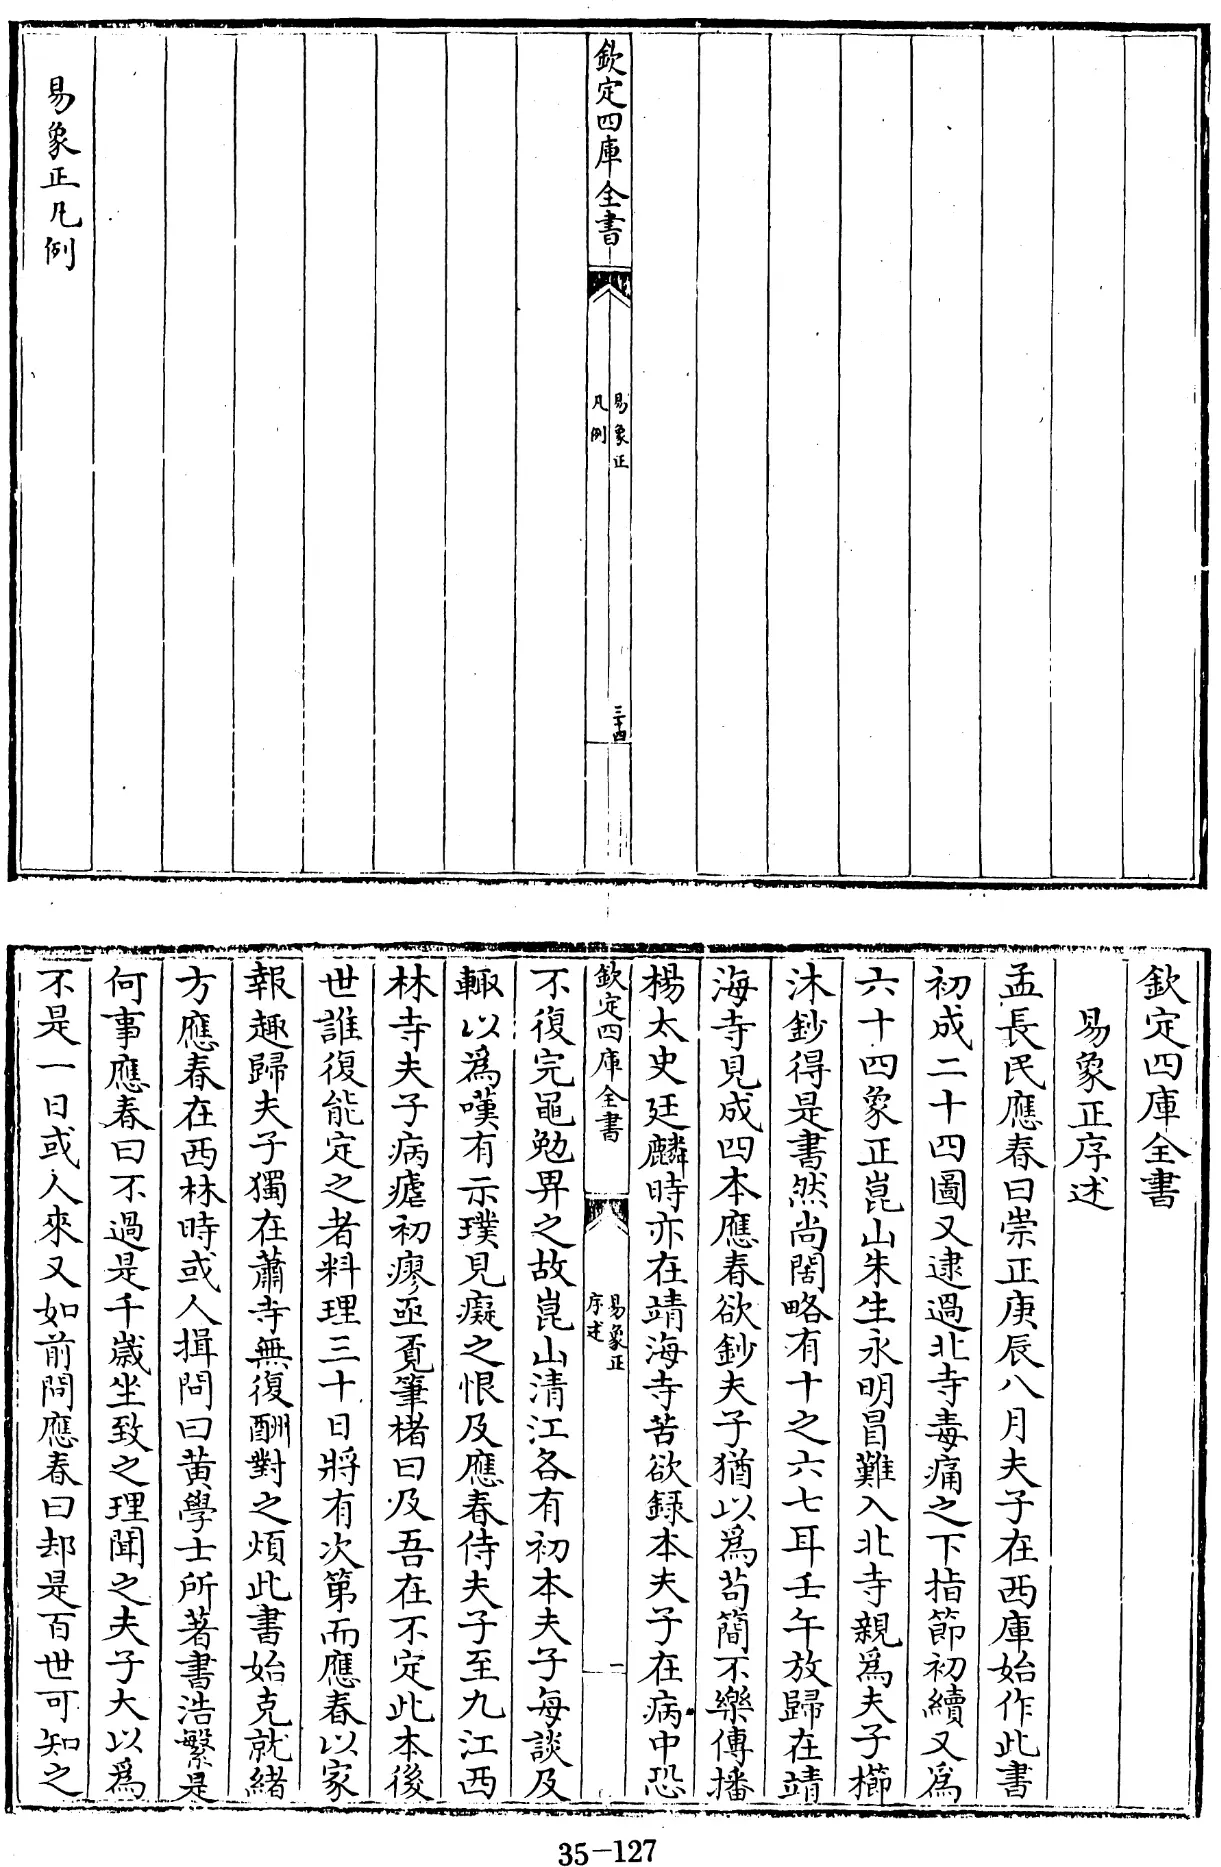 欽定四庫全書
易象正
凡例
三十四
易象正凡例
欽定四庫全書
易象正序述
孟長民應春曰崇正庚辰八月夫子在西庫始作此書
初成二十四圖又逮過北寺毒痛之下指節初續又為
六十四象正崑山朱生永明冒難入北寺親為夫子櫛
沐鈔得是書然尚闊略有十之六七耳壬午放歸在靖
海寺見成四本應春欲鈔夫子猶以為苟簡不樂傳播
楊太史廷麟時亦在靖海寺苦欲録本夫子在病中恐
欽定四庫全書
易象正
序述
一
不復完黽勉畀之故崑山清江各有初本夫子每談及
輙以為嘆有示璞見癡之恨及應春侍夫子至九江西
林寺夫子病瘧初瘳亟覓筆楮曰及吾在不定此本後
世誰復能定之者料理三十日將有次第而應春以家
報趣歸夫子獨在蕭寺無復酬對之煩此書始克就緒
方應春在西林時或人揖問曰黄學士所著書浩繁是
何事應春曰不過是千歲坐致之理聞之夫子大以為
不是一日或人來又如前問應春曰却是百世可知之
35-127